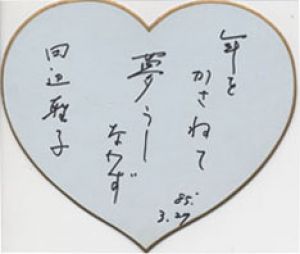 年を
かさねて
夢うし
なわず
田辺聖子
85.
3.27